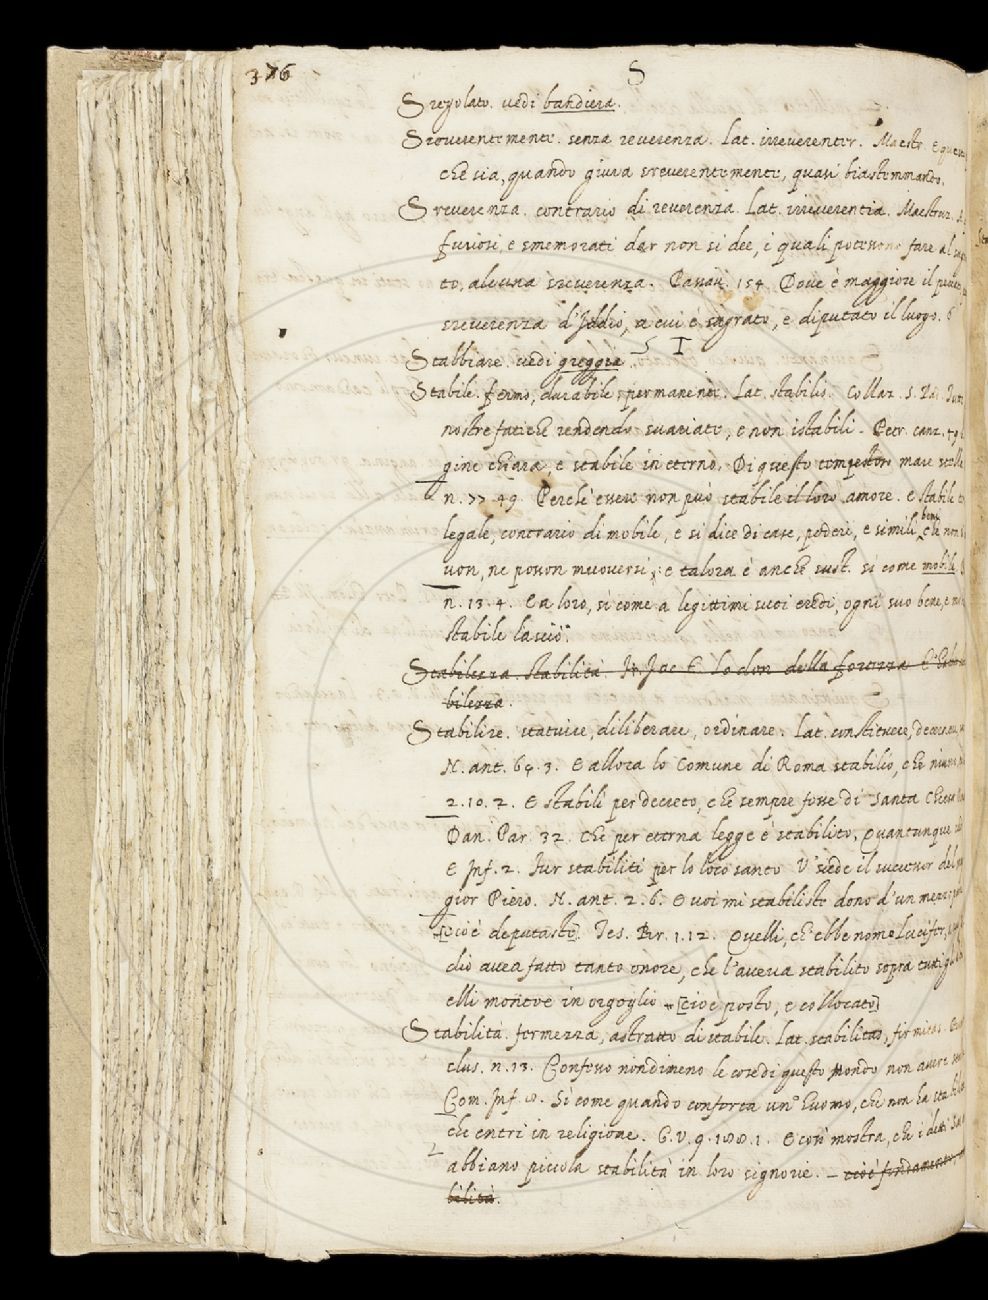 376
S
Sregolato. vedi bandiera.
Sreverentemente. senza reverenza. Lat. irreverenter. Maestr.
che sia, quando giura sreverentemente, quasi biastemmando.
Sreverenza. contrario di reverenza. Lat. irreverentia. Maestruz.
furiosi, e smemorati dar non si dee, i quali potessono fare al
to, alcuna sreverenza. Passav. 154. Dove è maggiore il
sreverenza d'Iddio, a cui è sagrato, e diputato il luogo.
S T
Stabbiare. vedi greggia
Stabile. fermo, durabile, permanente. Lat. stabilis. Collaz. S. Pad.
nostre fatiche rendendo svariate, e non istabili. Petr. canz.
gine chiara, e stabile in eterno, Di questo tempestoso mare stella
n. 77. 49. Perchè essere non può stabile il loro amore. e stabile
legale, contrario di mobile, e si dice di case, poderi, e simili beni che non
von, ne posson muoversi, e talora è anche sust. sì come mobile
n. 13. 4. E a loro, sì come a legittimi suoi eredi, ogni suo bene, e
stabile lasciò.
Stabilezza. stabilità. Fr. Jac. E lo don della fortezza
bilezza.
Stabilire. statuire, diliberare, ordinare. Lat. constituere,
N. ant. 69. 3. E allora lo Comune di Roma stabilío, che niuno
2. 10. 2. E stabilì per decreto, che sempre fosse di Santa Chiesa
Dan. Par. 32. Che per eterna legge è stabilito, Quantunque
E Inf. 2. Fur stabiliti per lo loco santo U' siede il successor del
gior Piero. N. ant. 2. 6. E voi mi stabiliste dono d'un mezzo
[cioè deputaste]. Tes. Br. 1. 12. Quelli, ch'ebbe nome Lucifer,
dio avea fatto tanto onore, che l'aveva stabilito sopra tutti gli
elli montoe in orgoglio [cioè posto, e collocato]
Stabilità. fermezza, astratto di stabile. Lat. stabilitas, firmitas.
clus. n. 13. Confesso nondimeno le cose di questo Mondo non avere
Com. Inf. 8. Sì come quando conforta un' huomo, che non ha
che entri in religione. G. V. 9. 188. 1. E così mostra, che i detti
abbiano piccola stabilità in loro signorie. cioè fondamento,
bilità.